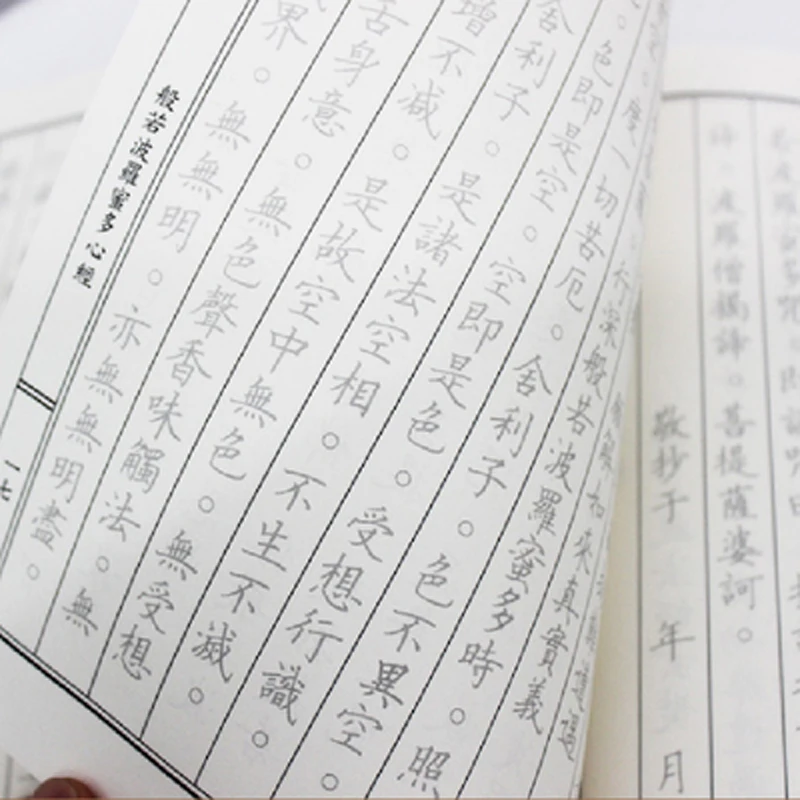 諦。波羅僧揭諦。菩提薩婆訶。
敬抄于 年 月
如來真實義
深般若波羅蜜多時。照
。度一切苦厄。舍利子。色不異空。
。色即是空。空即是色。受想行識。
舍利子。是諸法空相。不生不滅。
增不減。是故空中無色。無受想
舌身意。無色聲香味觸法。無
界。無無明。亦無無明盡。
般若波羅蜜多心經
一七